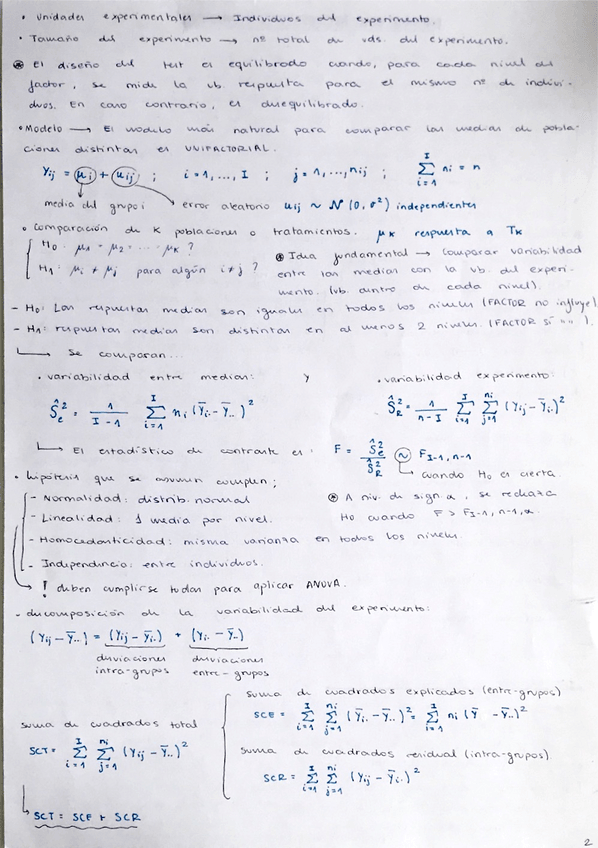 • Unidades experimentales → Individuos del experimento.
• Tamaño del experimento → nº total de uds. del experimento.
⊛ El diseño del test es equilibrado cuando, para cada nivel del
factor, se mide la vb. respuesta para el mismo nº de indivi-
duos. En caso contrario, es desequilibrado.
• Modelo → El modelo más natural para comparar las medias de pobla-
ciones distintas es UNIFACTORIAL.
Yij = μi + uij ; i = 1, ..., I ; j = 1, ..., nij ; Σ_{i=1}^{I} ni = n
media del grupo i error aleatorio uij ~ N(0, σ²) independientes
• Comparación de K poblaciones o tratamientos. μK respuesta a TK
H0: μ1 = μ2 = ... = μK ?
H1: μi ≠ μj para algún i ≠ j ?
⊛ Idea fundamental → comparar variabilidad
entre las medias con la vb. del experi-
mento. (vb. dentro de cada nivel).
- H0: Las respuestas medias son iguales en todos los niveles (FACTOR no influye)
- H1: respuestas medias son distintas en al menos 2 niveles. (FACTOR sí " ").
↳ Se comparan...
• variabilidad entre medias: y • variabilidad experimento:
Ŝe² = 1/(I-1) Σ_{i=1}^{I} ni (Ȳi. - Ȳ..)² ŜR² = 1/(n-I) Σ_{i=1}^{I} Σ_{j=1}^{ni} (Yij - Ȳi.)²
↳ El estadístico de contraste es: F = Ŝe²/ŜR² ~ FI-1, n-1
↳ cuando H0 es cierta.
• hipótesis que se asumen cumplen;
- Normalidad: distrib. normal
- Linealidad: 1 media por nivel.
- Homocedasticidad: misma varianza en todos los niveles.
- Independencia: entre individuos.
⊛ A niv. de sign. α, se rechaza
H0 cuando F > FI-1, n-1, α.
→ ! deben cumplirse todas para aplicar ANOVA.
- descomposición de la variabilidad del experimento:
(Yij - Ȳ..) = (Yij - Ȳi.) + (Yi. - Ȳ..)
desviaciones desviaciones
intra-grupos entre-grupos
suma de cuadrados total
SCT = Σ_{i=1}^{I} Σ_{j=1}^{ni} (Yij - Ȳ..)²
suma de cuadrados explicados (entre-grupos)
SCE = Σ_{i=1}^{I} Σ_{j=1}^{ni} (Ȳi. - Ȳ..)² = Σ_{i=1}^{I} ni (Ȳ - Ȳ..)²
suma de cuadrados residual (intra-grupos)
SCR = Σ_{i=1}^{I} Σ_{j=1}^{ni} (Yij - Ȳi.)²
↳ SCT = SCE + SCR
2